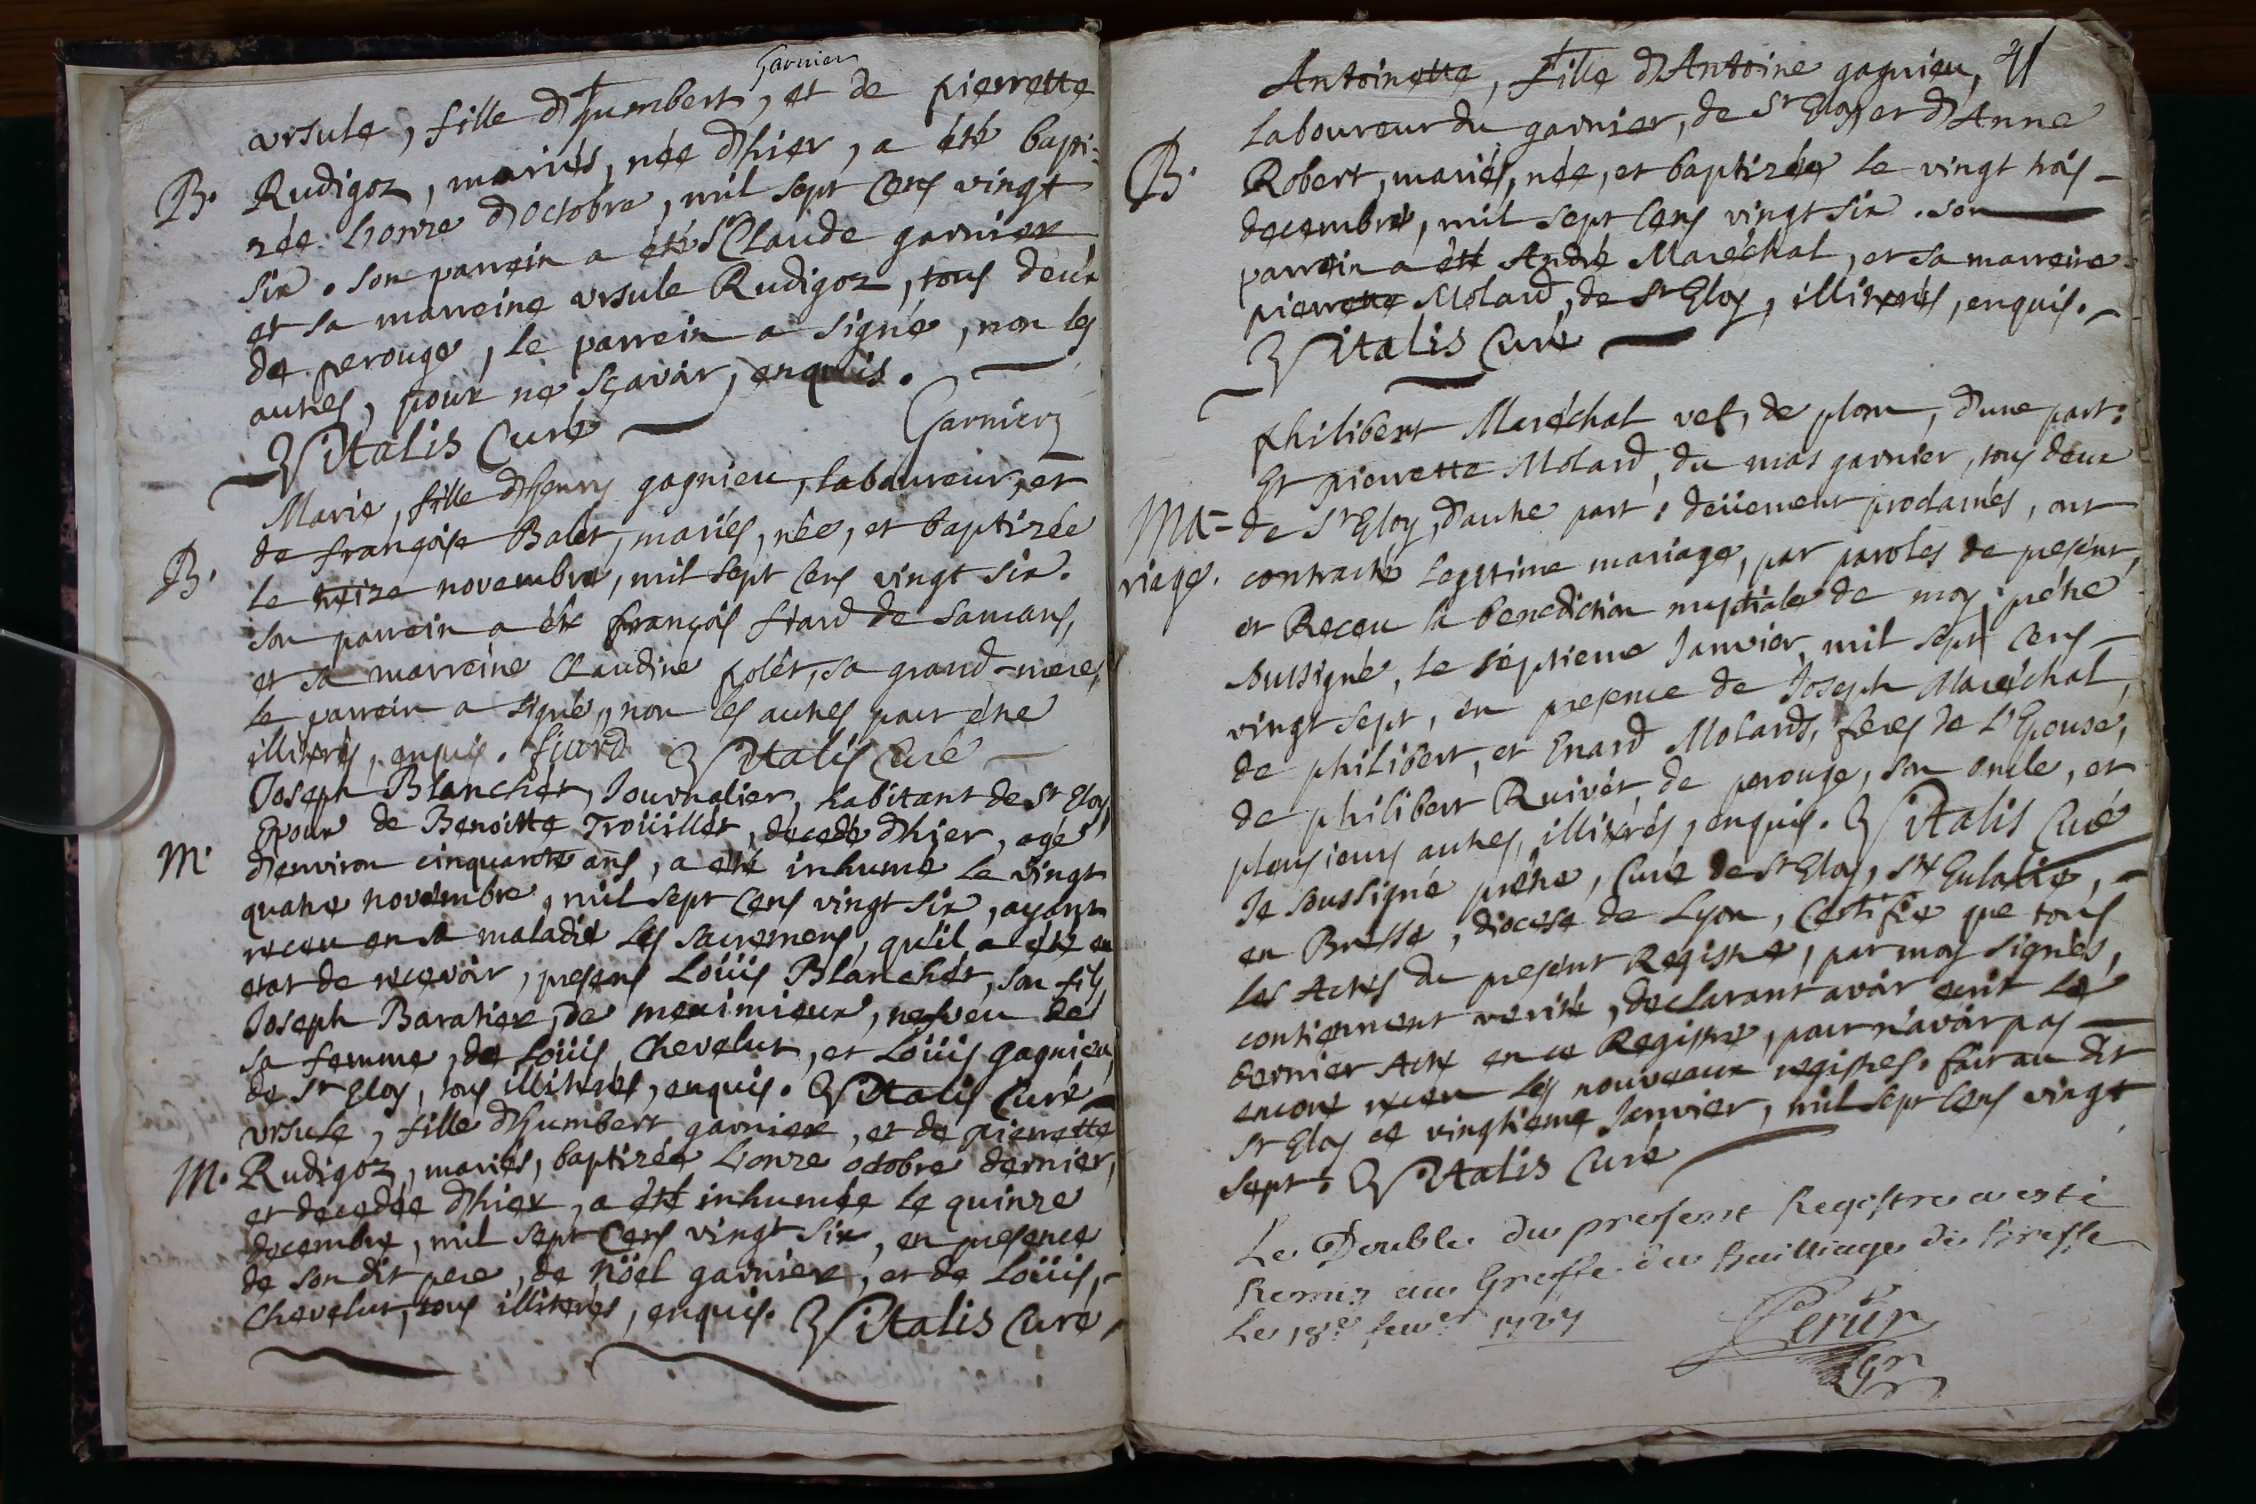 Garnier
ursule, fille d'humbert, et de pierrette
B. Rudigoz, mariés, née d'hier, a été bapti-
zée L'onze d'octobre, mil sept cens vingt
six. son parrein a été Sr Claude garnier
et sa marreine ursule Rudigoz, tous deux
de perouge, le parrein a signé, non les
autres, pour ne sçavoir, enquis.
Vitalis Curé Garnier
Marie, fille d'henry gagnieu, laboureur, et
B. de françoise Balet, mariés, née, et baptizée
le treize novembre, mil sept cens vingt six.
son parrein a été françois fiard de samans,
et sa marreine Claudine polet, sa grand-mere,
le parrein a signé, non les autres pour étre
illiterés, enquis. fiard Vitalis Curé
Joseph Blanchet, Journalier, habitant de St Eloy,
Epoux de Benoitte Troüillet, decedé d'hier, agé
M. d'environ cinquante ans, a été inhumé le vingt
quatre novembre, mil sept cens vingt six, ayant
receu en sa maladie les sacremens, qu'il a été en
etat de recevoir, presens Loüis Blanchet, son fils,
Joseph Baratier, de meximieux, nefveu de
sa femme, de Loüis Chevelut, et Loüis gagnieu,
de St Eloy, tous illiterés, enquis. Vitalis Curé
ursule, fille d'humbert garnier, et de pierrette
M. Rudigoz, mariés, baptizée L'onze octobre dernier,
et decedée d'hier, a été inhumée le quinze
decembre, mil sept cens vingt six, en presence
de son dit pere, de Nöel garnier, et de Loüis
Chevelut, tous illiterés, enquis. Vitalis Curé
Antoinette, fille d'Antoine gagnieu,
Laboureur du garnier, de St Eloy, et d'Anne
B. Robert, mariés, née, et baptizée le vingt trois
decembre, mil sept cens vingt six. son
parrein a été André Maréchal, et sa marreine
pierrette Molard, de St Eloy, illiterés, enquis.
Vitalis Curé
philibert Maréchal vef, de plom, d'une part:
Et pierrette Molard, du mas garnier, tous deux
Ma- de St Eloy, d'autre part; deüement proclamés, ont
riage. contracté Legitime mariage, par paroles de present,
et Receu la benediction nuptiale de moy prétre
soussigné, le séptieme Janvier mil sept cens
vingt sept, en presence de Joseph Maréchal,
de philibert, et Enard Molards, freres de L'Epouse,
de philibert Ruivet, de perouge, son oncle, et
plousieurs autres, illiterés, enquis. Vitalis Curé
Je soussigné prétre, Curé de St Eloy, Ste Eulalie,
en Bresse, diocese de Lyon, Certifie que tous
les Actes du present Registre, par moy signés,
contiennent verité, declarant avoir ecrit le
dernier Acte en ce Registre, pour n'avoir pas
encore receu les nouveaux registres. fait au dit
St Eloy ce vingtieme Janvier, mil sept cens vingt
sept. Vitalis Curé
Le Double du present Registre a esté
Remis au Greffe du Bailliage de Bresse
Le 18e fevr 1727